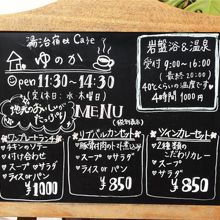 湯治宿et Cafe
ゆのか
Open 11:30〜14:30
(定休日:水・木曜日)
地元のおいしいが
たくさん
MENU
(税別表示)
岩盤浴&温泉
受付 9:00〜16:00
(最終 20:00)
40℃くらいの温度です♥
4時間 1000円
ワンプレートランチ
チキンのソテー
付け合わせ
スープ ♥サラダ
ライス or パン
¥1000
リブバルカンセット
豚骨付肉のトマト煮込み
スープ ♥サラダ
ライス or パン
¥850
ツインカレーセット
2種類の
こだわりカレー
スープ ♥サラダ
¥850